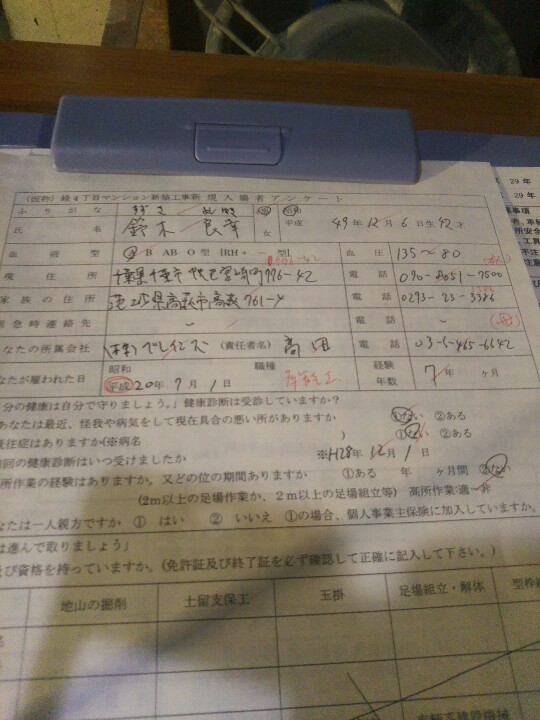 (仮称)緑4丁目マンション新築工事新 現入場者アンケート
ふりがな すずき
氏名 鈴木 男 女 昭和 平成 49年12月6日生42才
血液型 A B AB O型 [RH + - 型] 血圧 135~80
現住所 千葉県千葉市 776-42 電話 090-8651-7500
家族の住所 高萩市高萩761-4 電話 0293-23-3386
緊急時連絡先 〃 電話 〃 (母)
あなたの所属会社 (責任者名) 電話 03-5465-6642
あなたが雇われた日 昭和 平成 20年7月1日 職種 経験年数 7年 ヶ月
自分の健康は自分で守りましょう。」健康診断は受診していますか?
あなたは最近、怪我や病気をして現在具合の悪い所がありますか ①ない ②ある
既往症はありますか(※病名 ) ①ない ②ある
前回の健康診断はいつ受けましたか ※H28年12月1日
所作業の経験はありますか。又どの位の期間ありますか ①ある 年 ヶ月間 ②ない
(2m以上の足場作業か、2m以上の足場組立等) 高所作業:適~非
なたは一人親方ですか ① はい ② いいえ ①の場合、個人事業主保険に加入していますか。
は進んで取りましょう」
及び資格を持っていますか。(免許証及び終了証を必ず確認して正確に記入して下さい。)
地山の掘削 土留支保工 玉掛 足場組立・解体 型枠
29年
29年